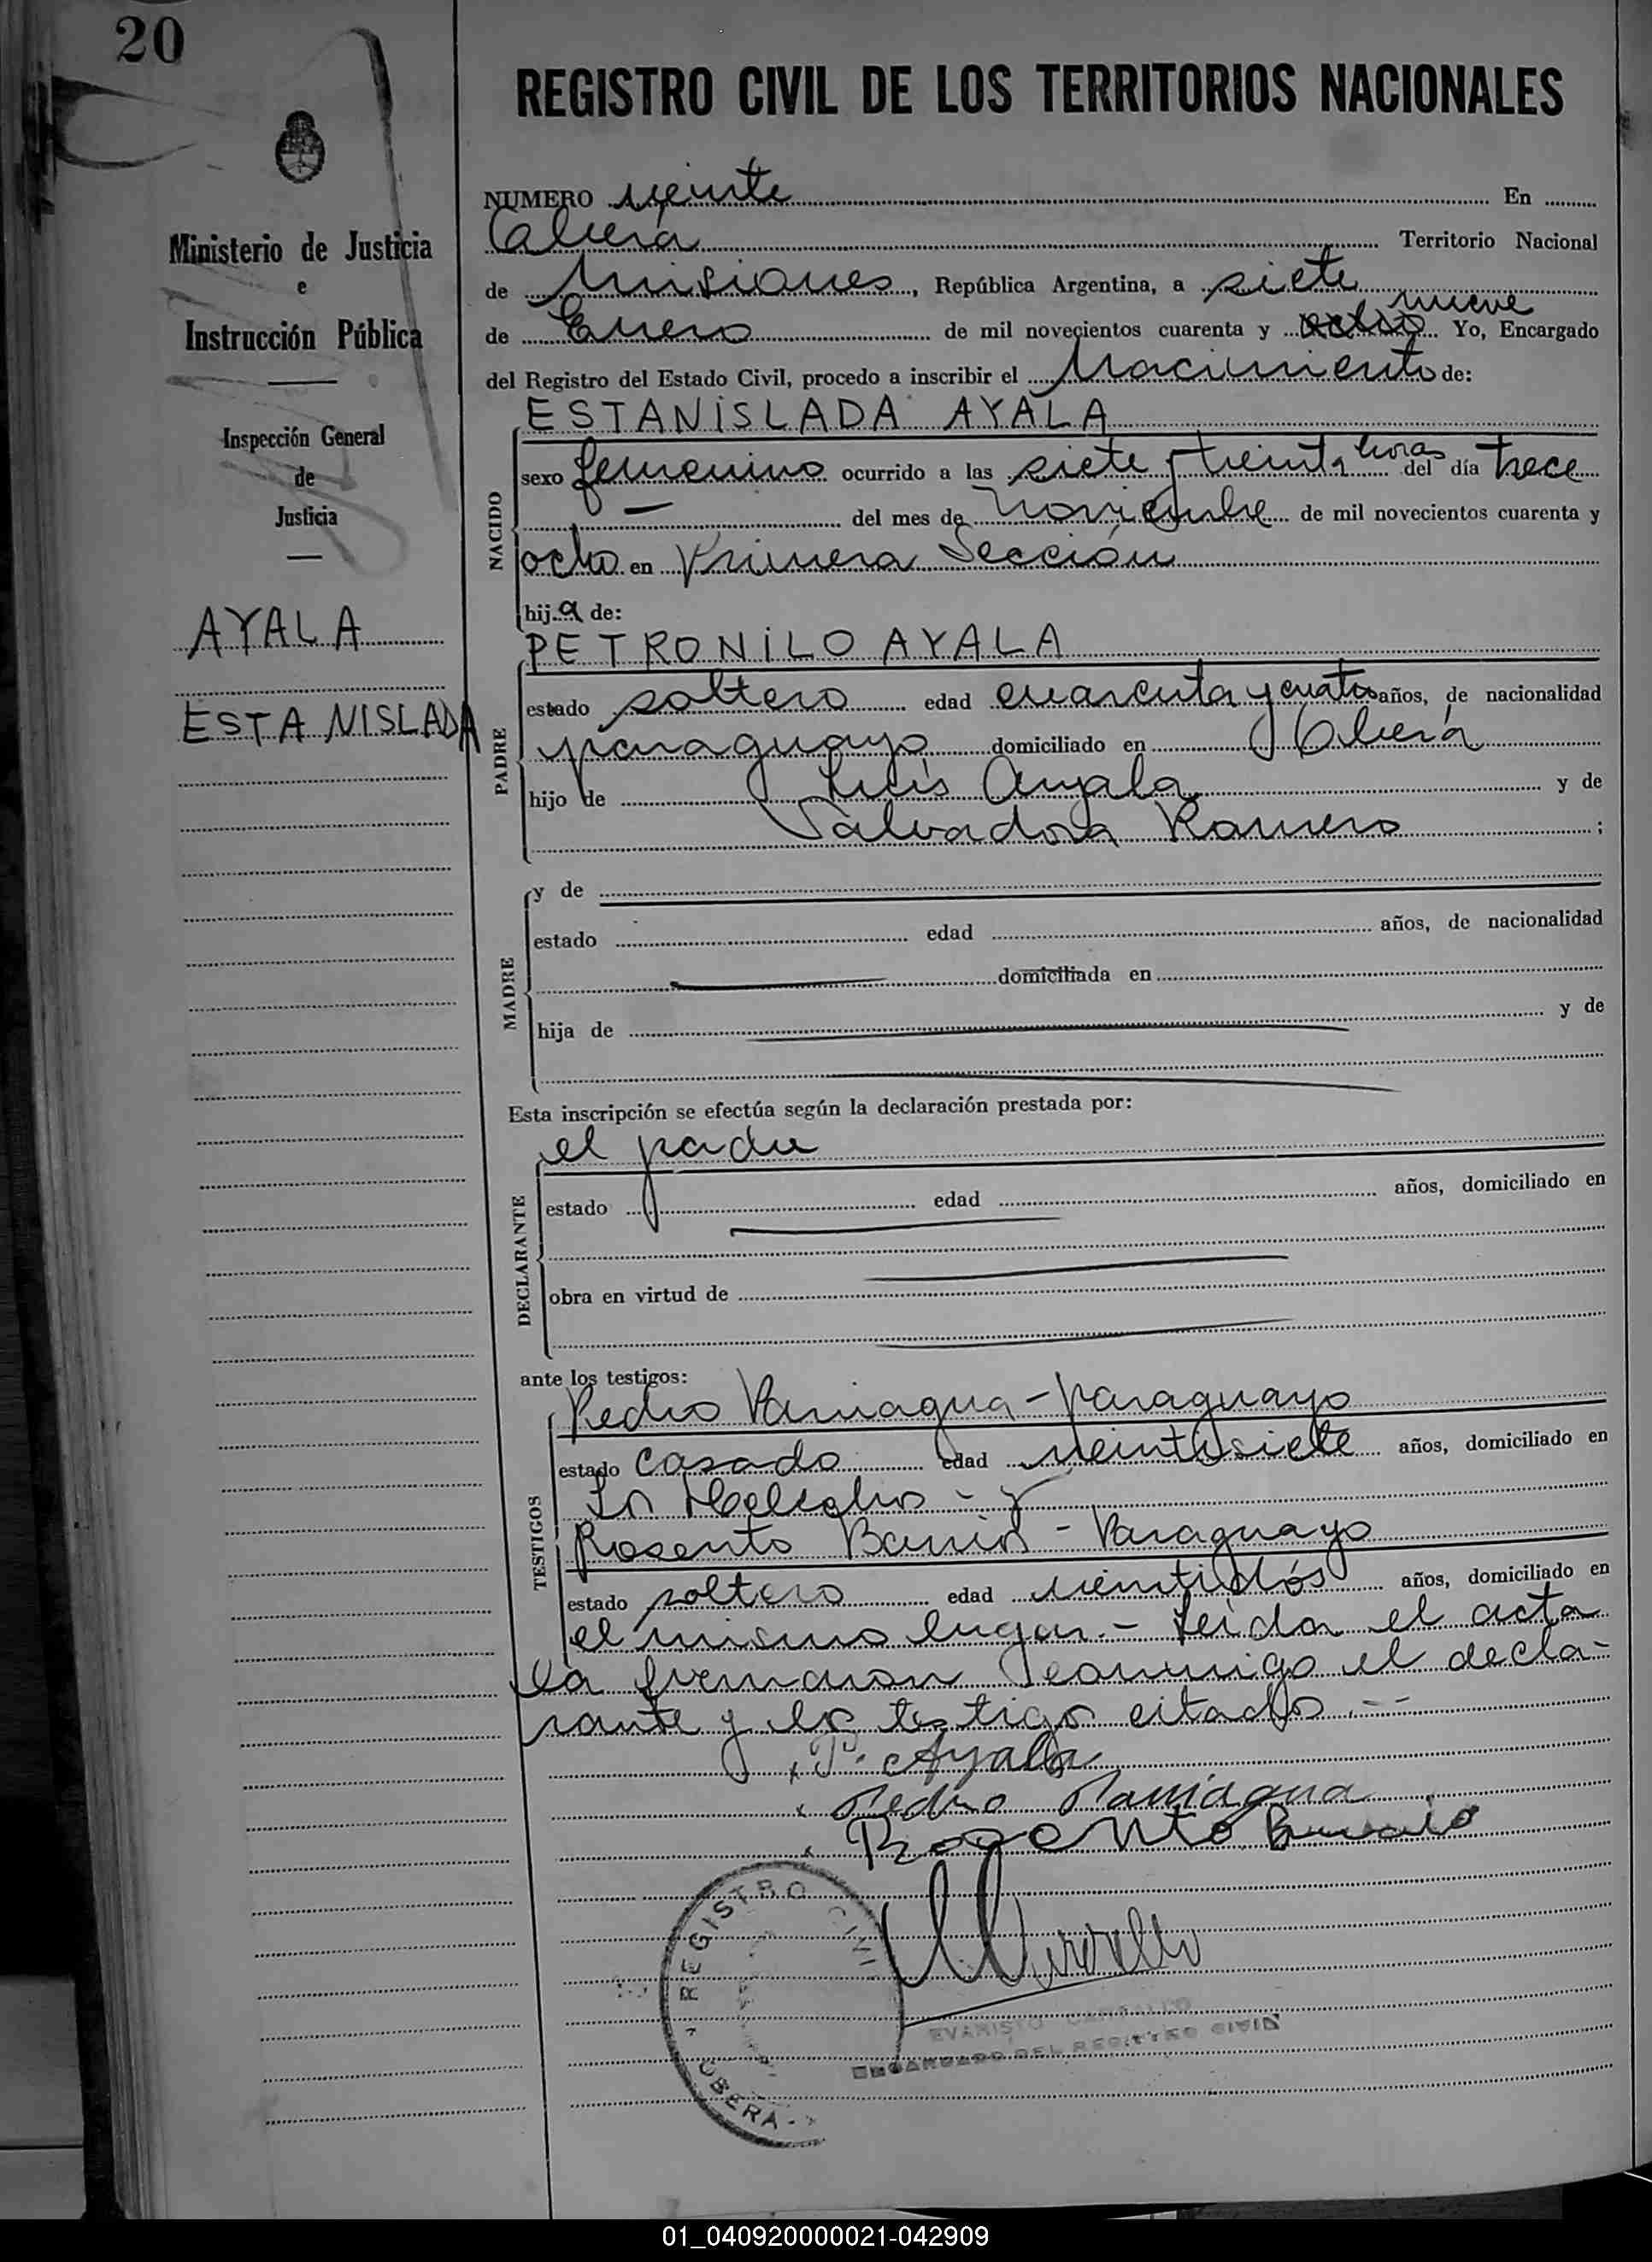 20
REGISTRO CIVIL DE LOS TERRITORIOS NACIONALES
Ministerio de Justicia
e
Instrucción Pública
Inspección General
de
Justicia
AYALA
ESTANISLADA
NUMERO veinte En
Oberá Territorio Nacional
de Misiones, República Argentina, a siete
nueve
de Enero de mil novecientos cuarenta y ocho Yo, Encargado
del Registro del Estado Civil, procedo a inscribir el Nacimiento de:
NACIDO
ESTANISLADA AYALA
sexo femenino ocurrido a las siete y treinta horas del día trece
del mes de noviembre de mil novecientos cuarenta y
ocho en Primera Sección
hija de:
PADRE
PETRONILO AYALA
estado soltero edad cuarenta y cuatro años, de nacionalidad
paraguayo domiciliado en Oberá
hijo de Luis Ayala y de
Salvadora Romero ;
MADRE
y de
estado edad años, de nacionalidad
domiciliada en
hija de y de
Esta inscripción se efectúa según la declaración prestada por:
DECLARANTE
el padre
estado edad años, domiciliado en
obra en virtud de
ante los testigos:
TESTIGOS
Pedro Paniagua - paraguayo
estado casado edad veintisiete años, domiciliado en
- y
Rosento - Paraguayo
estado soltero edad veintidós años, domiciliado en
el mismo lugar.- Leída el acta
la firmaron conmigo el decla-
rante y los testigo citados.--
P. Ayala
Pedro Paniagua
REGISTRO CIVIL
OBERA
EVARISTO
ENCARGADO DEL REGISTRO CIVIL
01_040920000021-042909